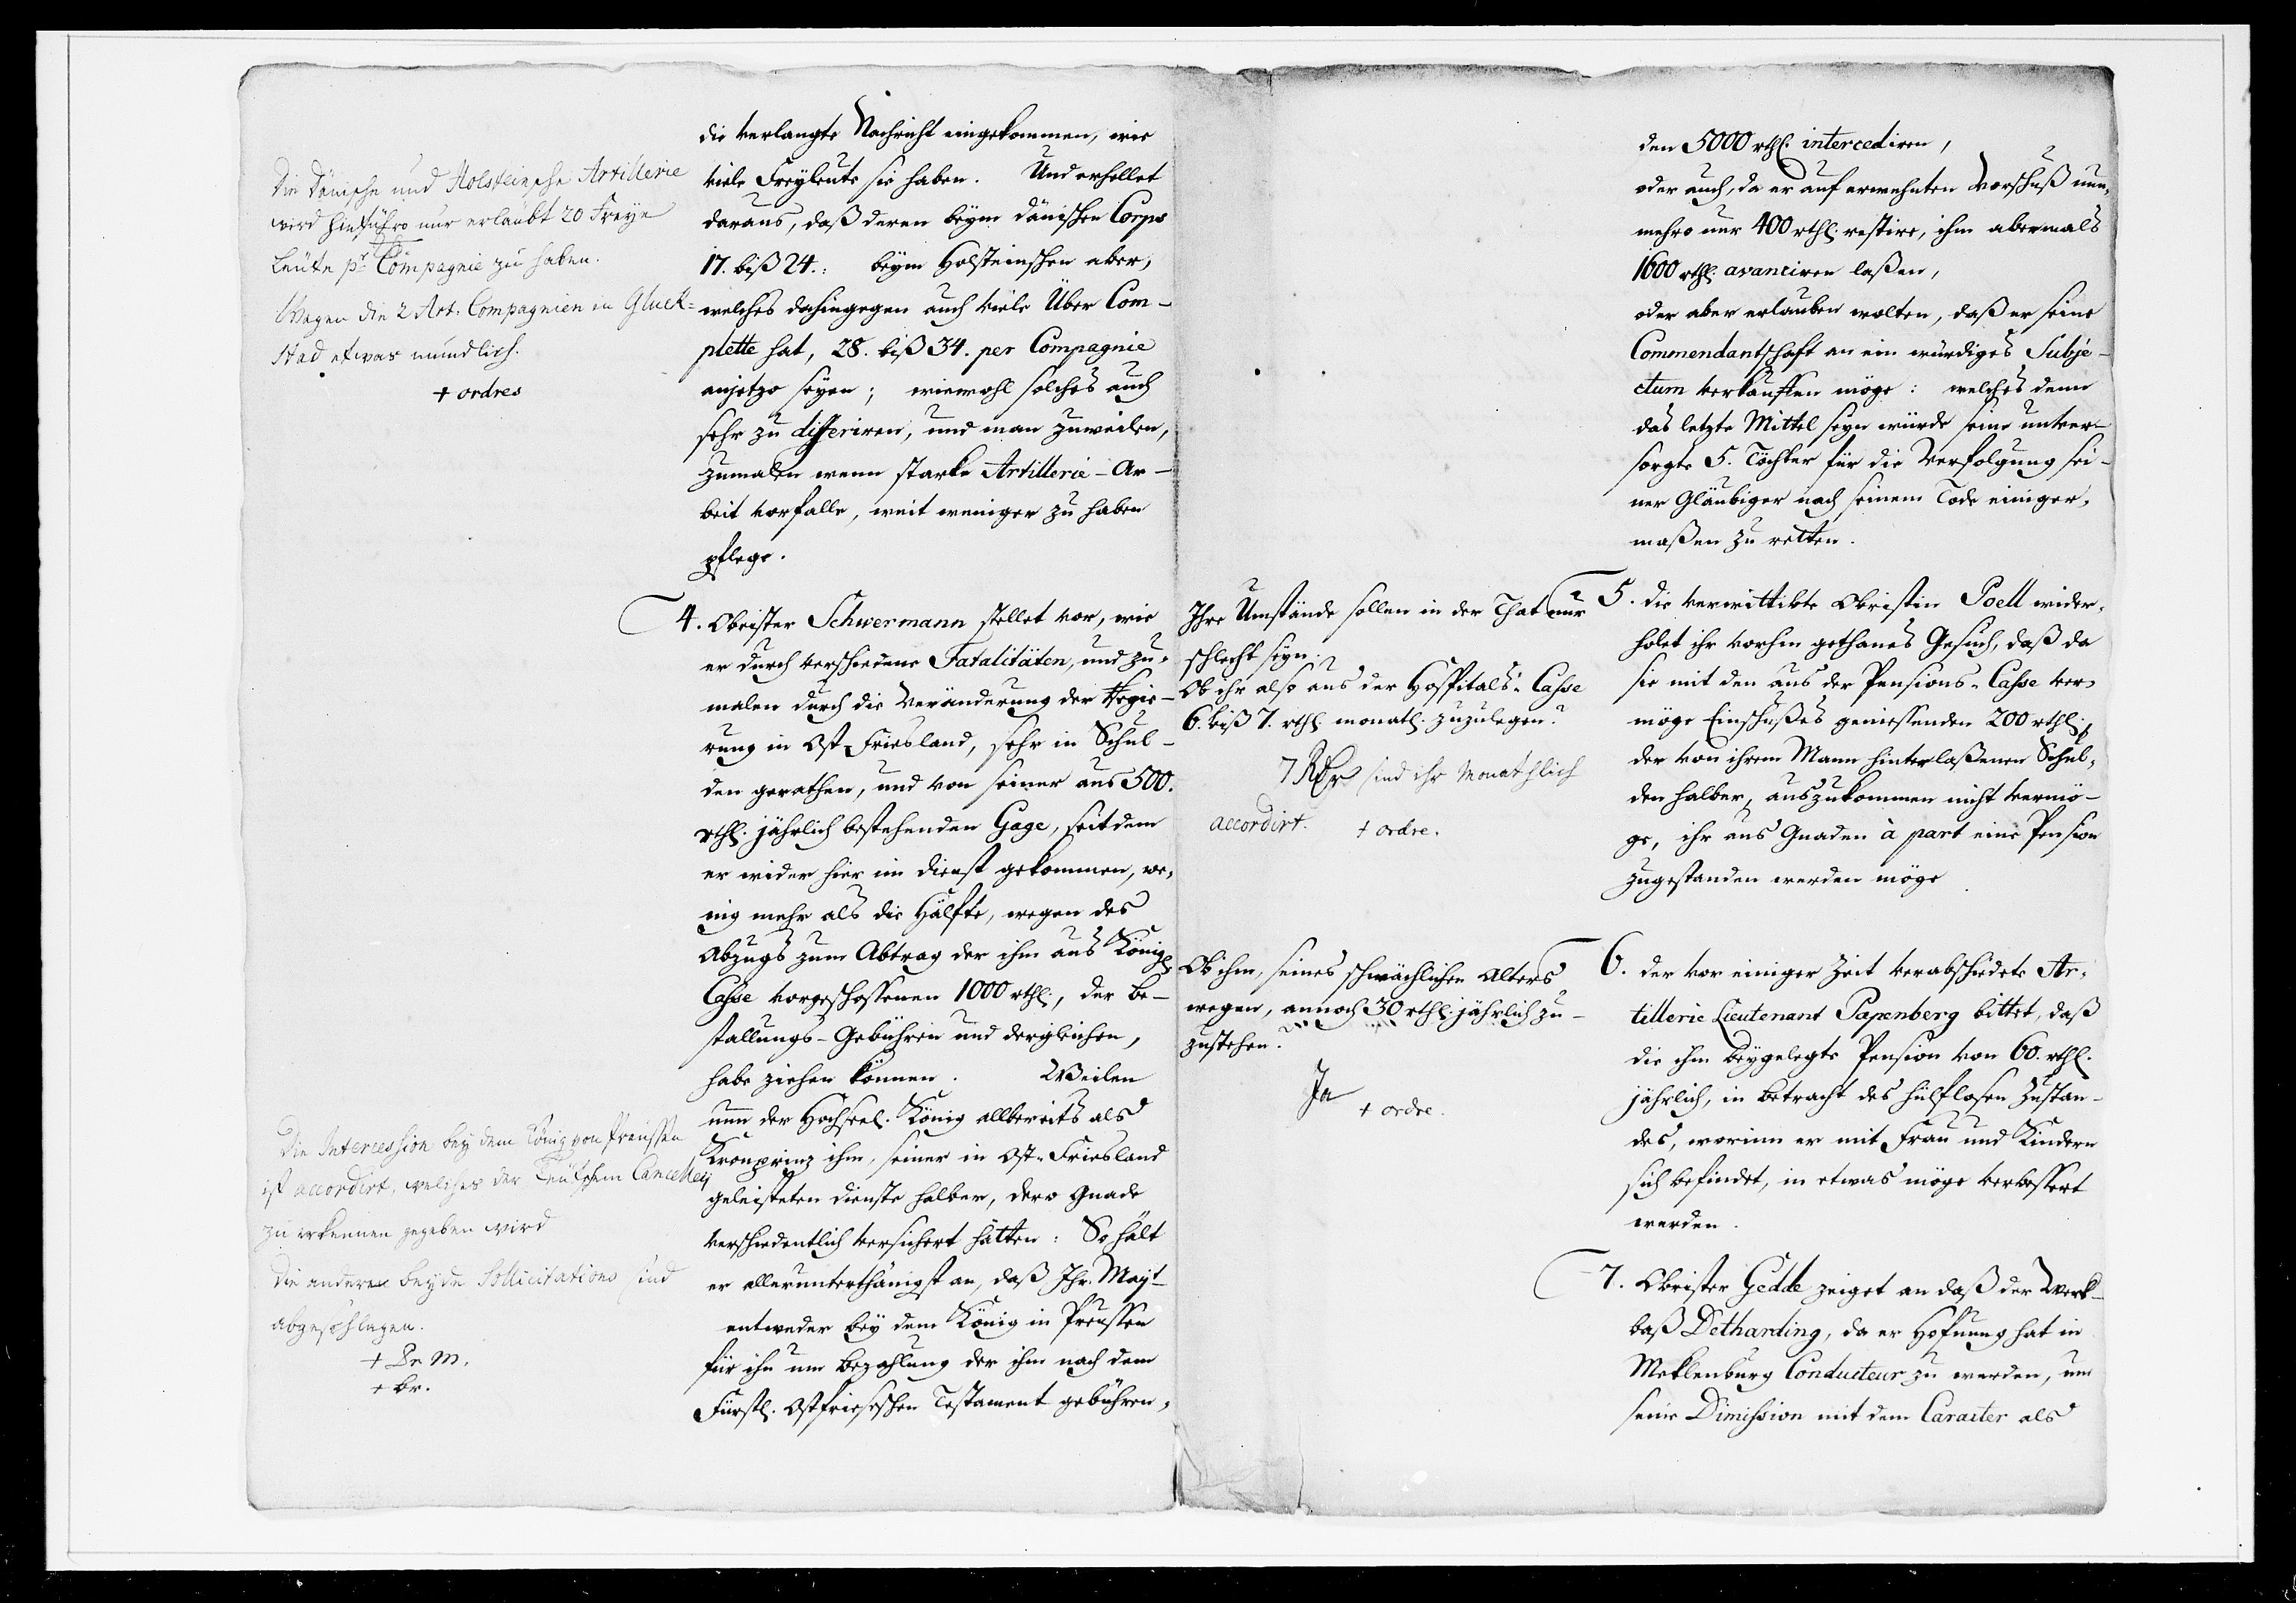 die verlangte Nachricht eingekommen, wie
viele Freyleute sie haben. Und erhellet
daraus, daß deren beym dänischen Corps
17. biß 24.: beym Holsteinschen aber,
welches dahingegen auch viele Über Com-
plette hat, 28. biß 34. per Compagnie
anjetzo seyen; wiewohl solches auch
sehr zu differiren, und man zuweilen,
zumalen wenn starke Artillerie-Ar-
beit vorfalle, weit weniger zu haben
pflege.
Die Dänische und Holsteinsche Artillerie
wird hinführo nur erlaubt 20 Freye
Leute pr Compagnie zu haben.
Wegen die 2 Art. Compagnien in Gluck=
stad etwas mündlich.
+ ordres
4. Obrister Schwermann stellet vor, wie
er durch verschiedene Fatalitäten, und zu-
malen durch die Veränderung der Regie-
rung in Ost-Friesland, sehr in Schul-
den gerathen, und von seiner aus 500.
rthl. jährlich bestehenden Gage, seitdem
er wider hier im Dienst gekommen, we-
nig mehr als die Hälfte, wegen des
Abzugs zum Abtrag der ihm aus Königl.
Casse vorgeschossenen 1000 rthl., der Be-
stallungs-Gebühren und dergleichen,
habe ziehen können. Weilen
nun der Hochseel. König allbereits als
Kronprinz ihm, seiner in Ost-Friesland
geleisteten Dienste halber, dero Gnade
verschiedentlich versichert hätten: So hält
er allerunterthänigst an, daß Ihr. Mayt
entweder bey dem König in Preussen
für ihn um Bezahlung der ihm nach dem
Fürstl. Ostfriesischen Testament gebühren-
Die Intercession bey dem König von Preussen
ist accordirt, welches der Teutschen Canceley
zu erkennen gegeben wird
Die anderen beyde Sollicitations sind
abgeschlagen.
+ Pr. M.
+ br.
den 5000 rthl. intercediren,
oder auch, da er auf erwehnten Vorschuß nun-
mehro nur 400 rthl. restire, ihm abermals
1600 rthl. avanciren laßen,
oder aber erlauben wolten, daß er seine
Commendantschaft an ein würdiges Subje-
ctum verkauffen möge: welches denn
das letzte Mittel seyn würde seine unver-
sorgte 5. Töchter für die Verfolgung sei-
ner Gläubiger nach seinem Tode einiger-
maßen zu retten.
5. Die verwittibte Obristin Poell wider-
holet ihr vorhin gethanes Gesuch, daß da
sie mit den aus der Pensions-Casse ver-
möge Einschußes geniessenden 200 rthl.,
der von ihrem Mann hinterlaßenen Schul-
den halber, auszukommen nicht vermö-
ge, ihr aus Gnaden à part eine Pension
zugestanden werden möge.
Ihre Umstände sollen in der That nur
schlecht seyn.
Ob ihr also aus der Hospitals-Casse
6. biß 7. rthl. monatl. zuzulegen?
7 Rdr sind ihr Monathlich
accordirt. + ordre.
6. Der vor einiger Zeit verabschiedete Ar-
tillerie Lieutenant Papenberg bittet, daß
die ihm beygelegte Pension von 60. rthl.
jährlich, in Betracht des hülflosen Zustan-
des, worinn er mit Frau und Kindern
sich befindet, in etwas möge verbessert
werden.
Ob ihm, seines schwächlichen Alters
wegen, annoch 30 rthl. jährlich zu-
zustehen?
Ja
+ ordre.
7. Obrister Gedde zeiget an daß der Werk-
baß Detharding, da er Hofnung hat in
Meklenburg Conducteur zu werden, um
seine Dimission mit dem Caracter als